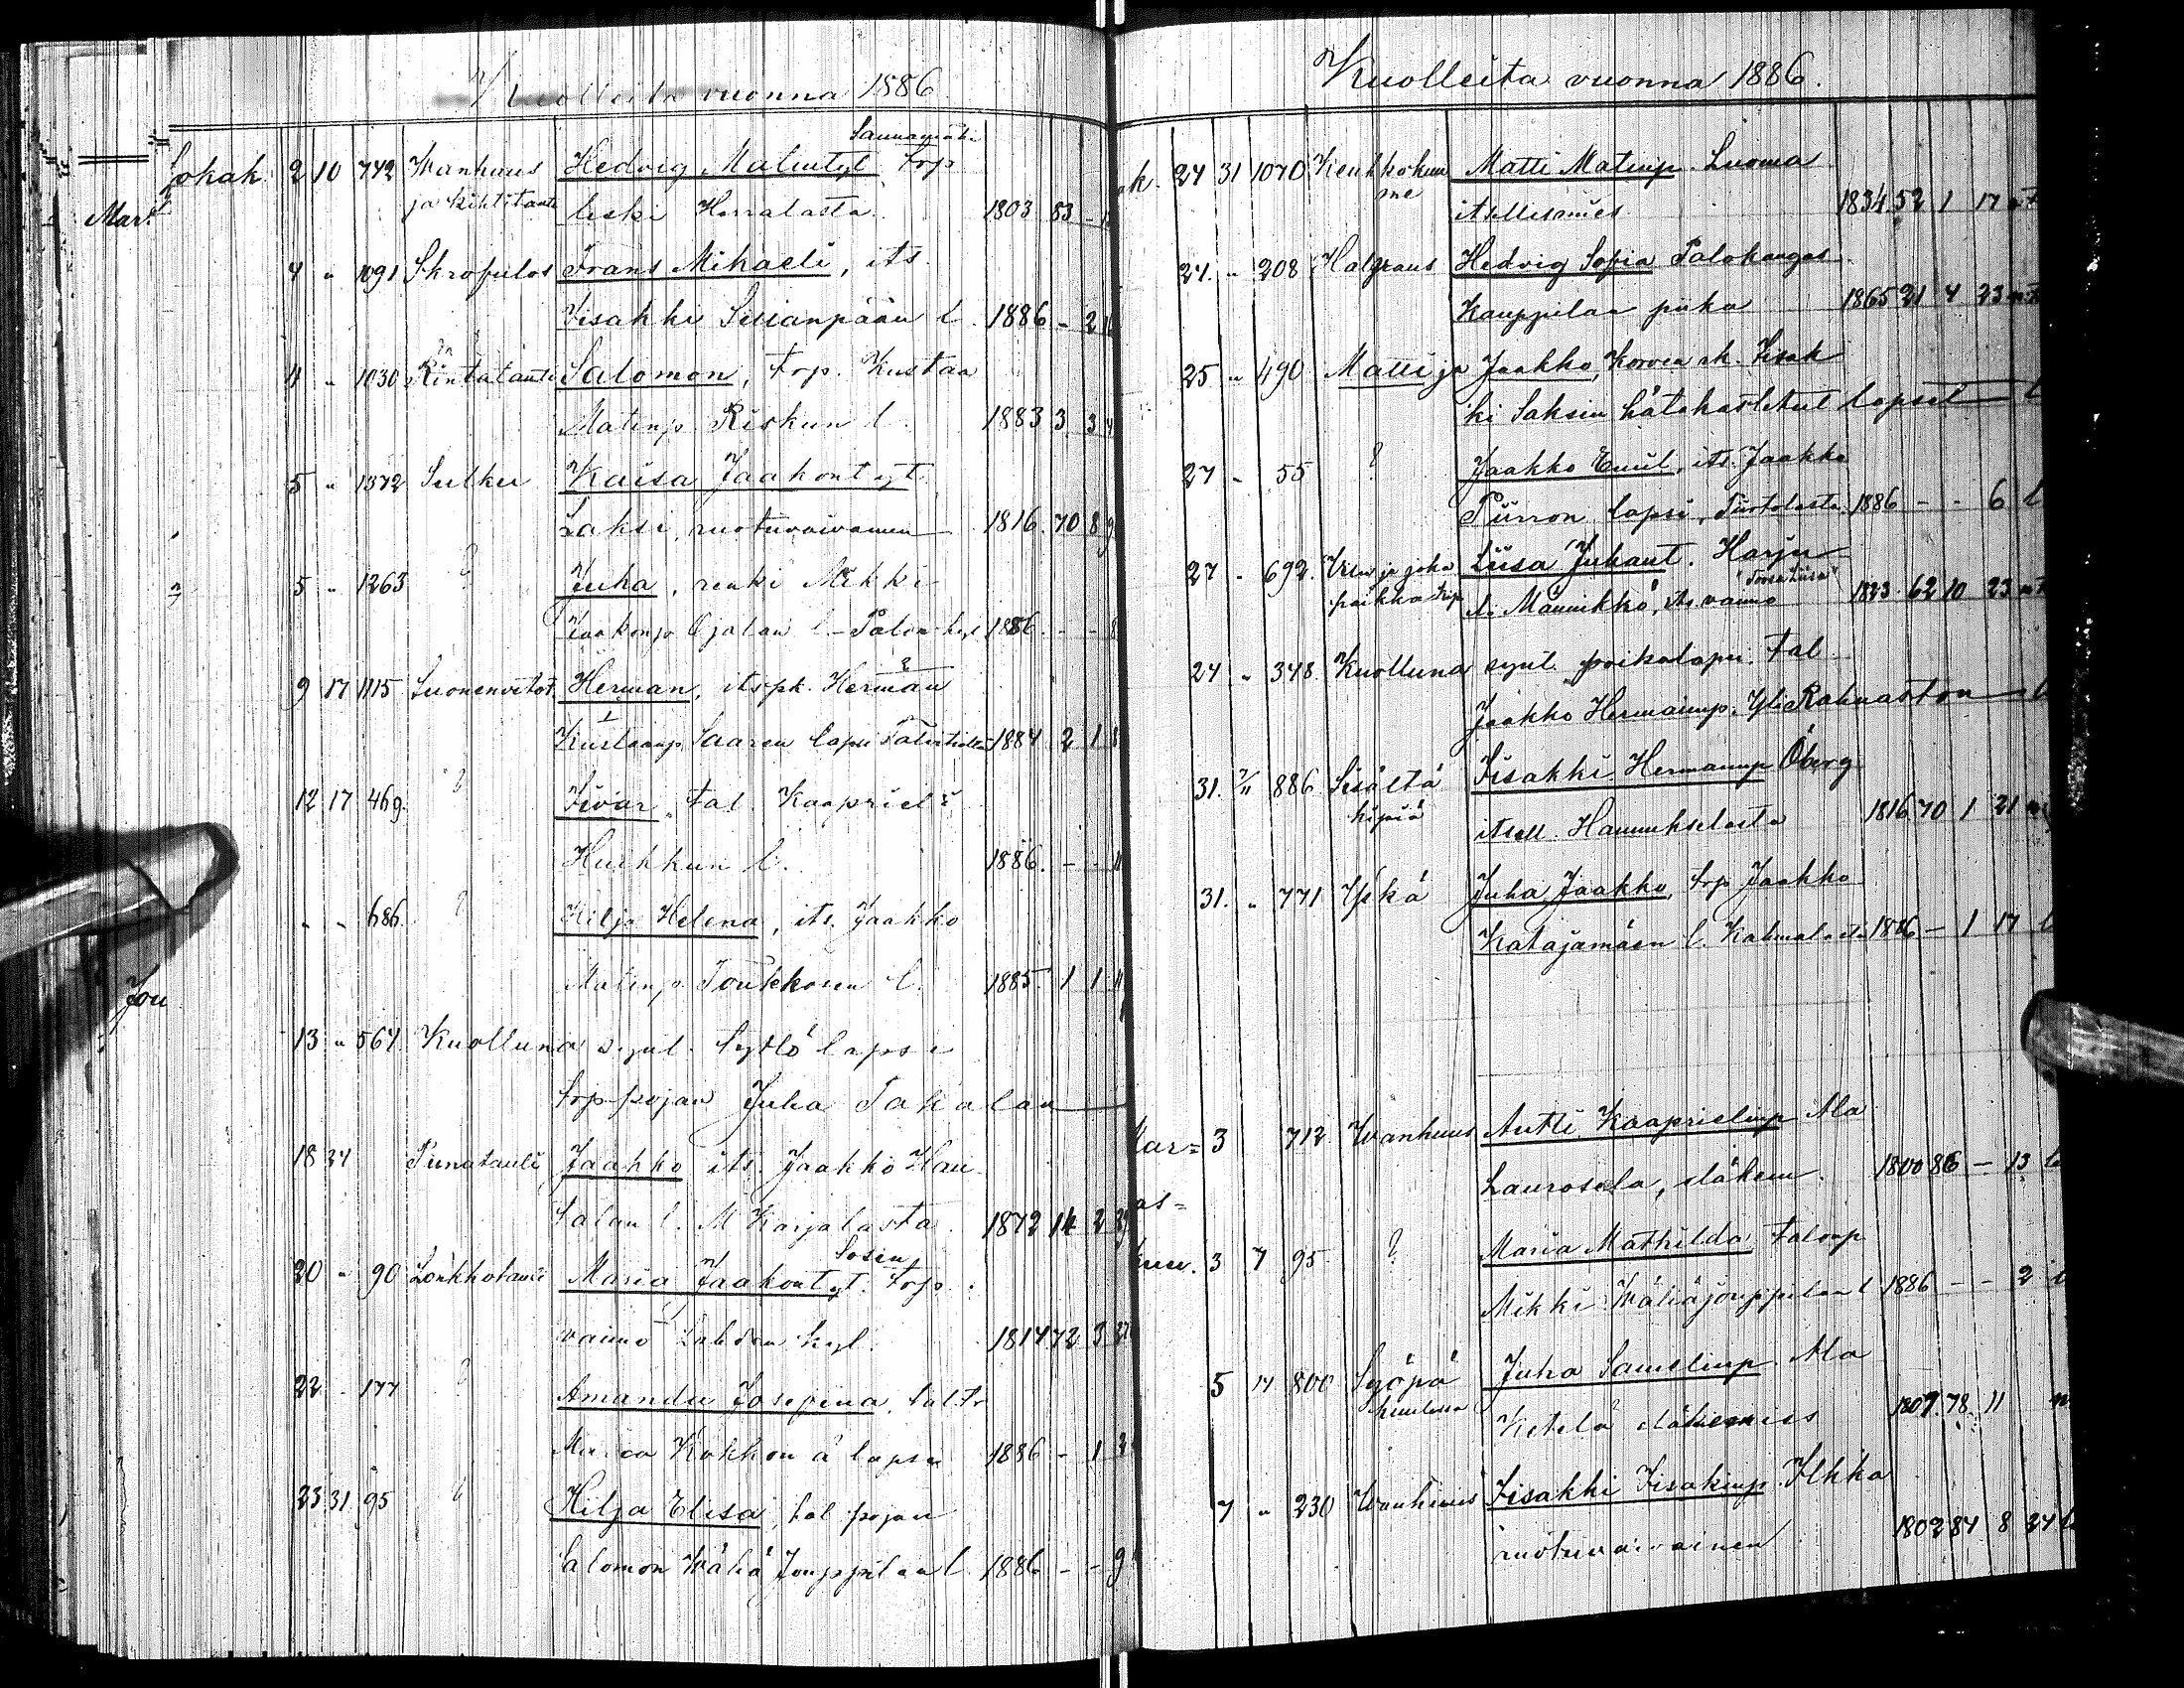 Kuolleita vuonna 1886
Lokak. 2 10 742 Wanhuus Hedvig Matintyt. Trp
ja kihtitauti leski Harralasta 1803 83 -
Mar.
4 " 1091 Skrofulos Frans Mihaeli, its.
Iisakki Susianpään l. 1886 - 2
4 " 1030 Rintatauti Salomon, trp. Kustaa
Matinp. Riskun l. 1883 3 3
5 " 1372 Sulku Kaisa Jaakontyt
Laksi, ruotuvaivainen 1816. 70 8 9
5 " 1263 ? Juha, renki Mikki
Jaakonp. Ojalan l. 1886. - - 8
9 17 1115 Suonenvetot. Herman, itspk. Herman
Kustaanp. Saaren lapsi 1884 2 1 8
12 17 469. ? Iivar, tal. Kaapriel
Huhkun l. 1886. - - 11
" " 686. ? Hilja Helena, its. Jaakko
Matinp. Toukkosen l. 1885. 1 1 11
Jou
13 " 564. Kuolluna synt. tyttö lapsi
trp-pojan Juha Takalan
18 24 Punatauti Jaakko its. Jaakko Hau
salan l. M Karjalasta. 1872 14 2 29
20 " 90 Maria Jaakontyt. trp.
vaimo Lahden kyl. 1814 72 3 27
22 - 177 ? Amanda Josefina, tal. tr
Maria Kokkon ä lapsi 1886 - 1
23 31 95 ? Hilja Elisa, tal. pojan
Salomon Wähä Jouppilan l. 1886 - - 9
Kuolleita vuonna 1886.
24 31 1070 Keuhkokuu Matti Matinp. Luoma
me itsellismies 1834. 52 1 17
24. " 208 Hedvig Sofia Palokangas
Kauppilan piika 1865 21 4 23
25 " 490 Matti ja Jaakko, Korven rk. Iisak
ki Saksin hätäkastetut lapset
27 - 55 ? Jaakko Emil, its. Jaakko
Piirron lapsi, 1886 - - 6 l
27 - 692. Liisa Juhant. Harju
Männikkö, its. vaimo 1823. 62 10 23
24 " 348. Kuolluna synt. poikalapsi tal
Jaakko Hermaninp. Yli Rahnaston
31. 7/11 886 Sisältä Iisakki Hermaninp Öberg
kipiä itsell. Hannukselasta 1816 70 1 21
31. " 771 Yskä Juha Jaakko, trp Jaakko
Katajamäen l. 1886 - 1 17 l
Mar= 3 712 Wanhuus Antti Kaaprielinp Ala
Laurosela, eläkem. 1800 86 - 13
as=
kuu. 3 7 95 ? Maria Mathilda, talonp
Mikki Wähäjouppilan l 1886 - - 2
5 14 800 Syöpä Juha Samelinp. Ala
huulessa Ketola eläkemies 1807. 78. 11
7 " 230 Wanhuus Iisakki Iisakinp Ilkka
ruotuvaivainen 1802 84 8 24